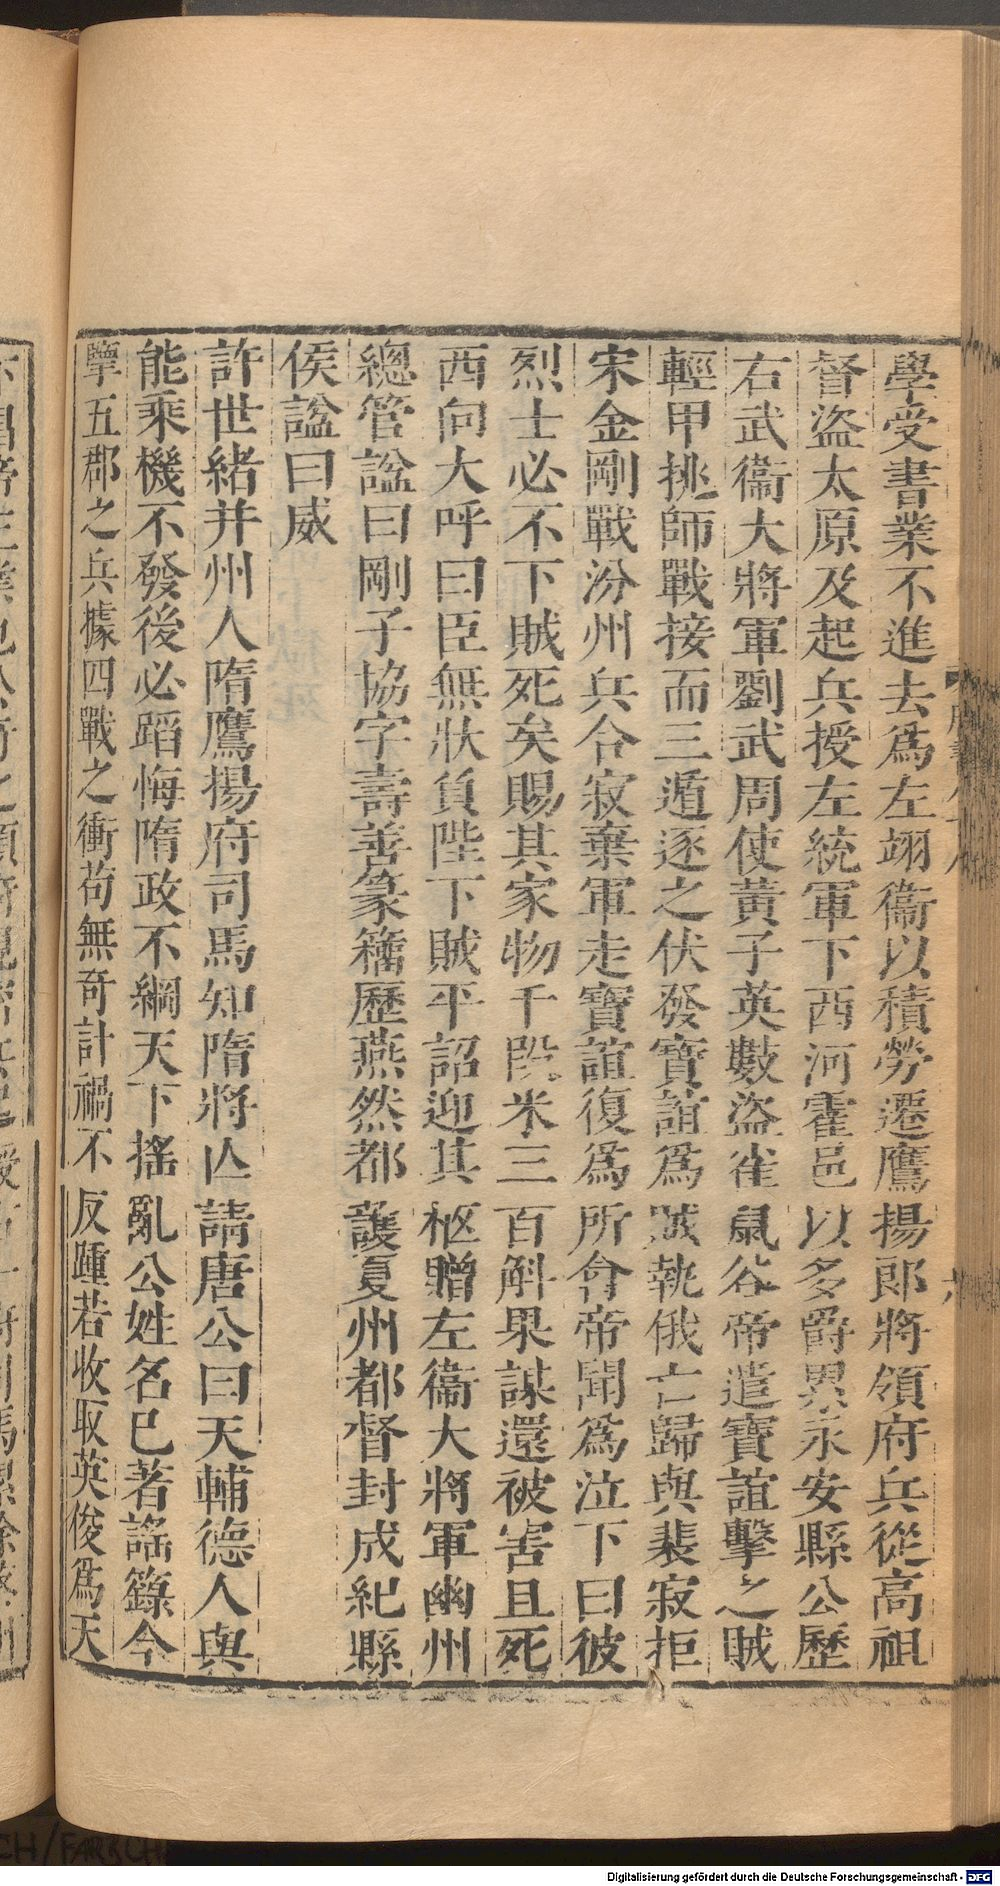 學受書業不進去爲左翊衞以積勞遷鷹揚郎將領府兵從高祖
督盜太原及起兵授左統軍下西河霍邑以多爵累永安縣公歷
右武衞大將軍劉武周使黃子英數盜雀鼠谷帝遣寶誼擊之賊
輕甲挑師戰接而三遁逐之伏發寶誼爲賊執俄亡歸與裴寂拒
宋金剛戰汾州兵合寂棄軍走寶誼復爲所會帝聞爲泣下曰彼
烈士必不下賊死矣賜其家物千段米三百斛果謀還被害且死
西向大呼曰臣無狀負陛下賊平詔迎其柩贈左衞大將軍幽州
總管諡曰剛子協字壽善篆籀歷燕然都護夏州都督封成紀縣
侯諡曰威
許世緒并州人隋鷹揚府司馬知隋將亾請唐公曰天輔德人與
能乘機不發後必蹈悔隋政不綱天下搖亂公姓名已著謠籙今
擥五郡之兵據四戰之衝苟無奇計禍不反踵若收取英俊爲天
Digitalisierung gefördert durch die Deutsche Forschungsgemeinschaft - DFG